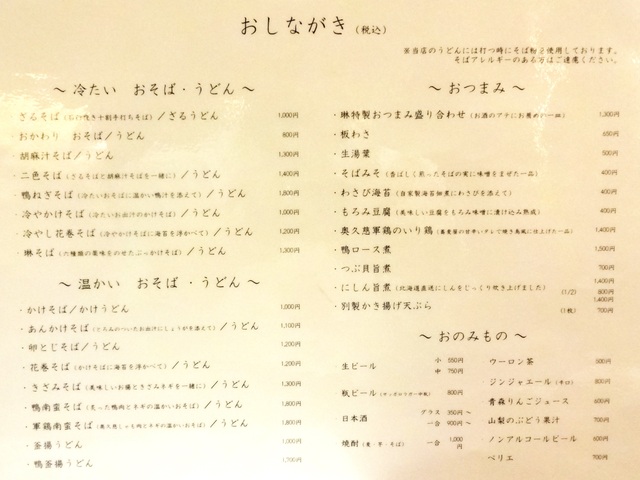 おしながき（税込）
※当店のうどんには打つ時にそば粉を使用しております。
そばアレルギーのある方はご遠慮ください。
～ 冷たい おそば・うどん ～
・ざるそば（石臼挽き十割手打ちそば）／ざるうどん 1,000円
・おかわり おそば／うどん 800円
・胡麻汁そば／うどん 1,300円
・二色そば（ざるそばと胡麻汁そばを一緒に）／うどん 1,400円
・鴨ねぎそば（冷たいおそばに温かい鴨汁を添えて）／うどん 1,800円
・冷やかけそば（冷たいお出汁のかけそば）／うどん 1,000円
・冷やし花巻そば（冷やかけそばに海苔を浮かべて）／うどん 1,200円
・琳そば（六種類の薬味をのせたぶっかけそば）／うどん 1,300円
～ 温かい おそば・うどん ～
・かけそば／かけうどん 1,000円
・あんかけそば（とろみのついたお出汁にしょうがを添えて）／うどん 1,100円
・卵とじそば／うどん 1,200円
・花巻そば（かけそばに海苔を浮かべて）／うどん 1,200円
・きざみそば（美味しいお揚ときざみネギを一緒に）／うどん 1,300円
・鴨南蛮そば（炙った鴨肉とネギの温かいおそば）／うどん 1,800円
・軍鶏南蛮そば（奥久慈しゃも肉とネギの温かいおそば）／うどん 1,800円
・釜揚うどん 1,000円
・鴨釜揚うどん 1,700円
～ おつまみ ～
・琳特製おつまみ盛り合わせ（お酒のアテにお薦めの一皿） 1,300円
・板わさ 650円
・生湯葉 500円
・そばみそ（香ばしく煎ったそばの実に味噌をまぜた一品） 400円
・わさび海苔（自家製海苔佃煮にわさびを添えて） 400円
・もろみ豆腐（美味しい豆腐をもろみ味噌に漬け込み熟成） 400円
・奥久慈軍鶏のいり鶏（蕎麦屋の甘辛いタレで焼き鳥風に仕上げた一品） 1,400円
・鴨ロース煮 1,500円
・つぶ貝旨煮 700円
・にしん旨煮（北海道直送にしんをじっくり炊き上げました） 1,400円
(1/2) 800円
・別製かき揚げ天ぷら 1,400円
(1枚) 700円
～ おのみもの ～
生ビール 小 550円
中 750円
瓶ビール 800円
日本酒 グラス 350円～
一合 900円～
焼酎（麦・芋・そば） 一合 1,000円
ウーロン茶 500円
・ジンジャエール（辛口） 600円
青森りんごジュース 600円
山梨のぶどう果汁 700円
ノンアルコールビール 600円
ペリエ 700円